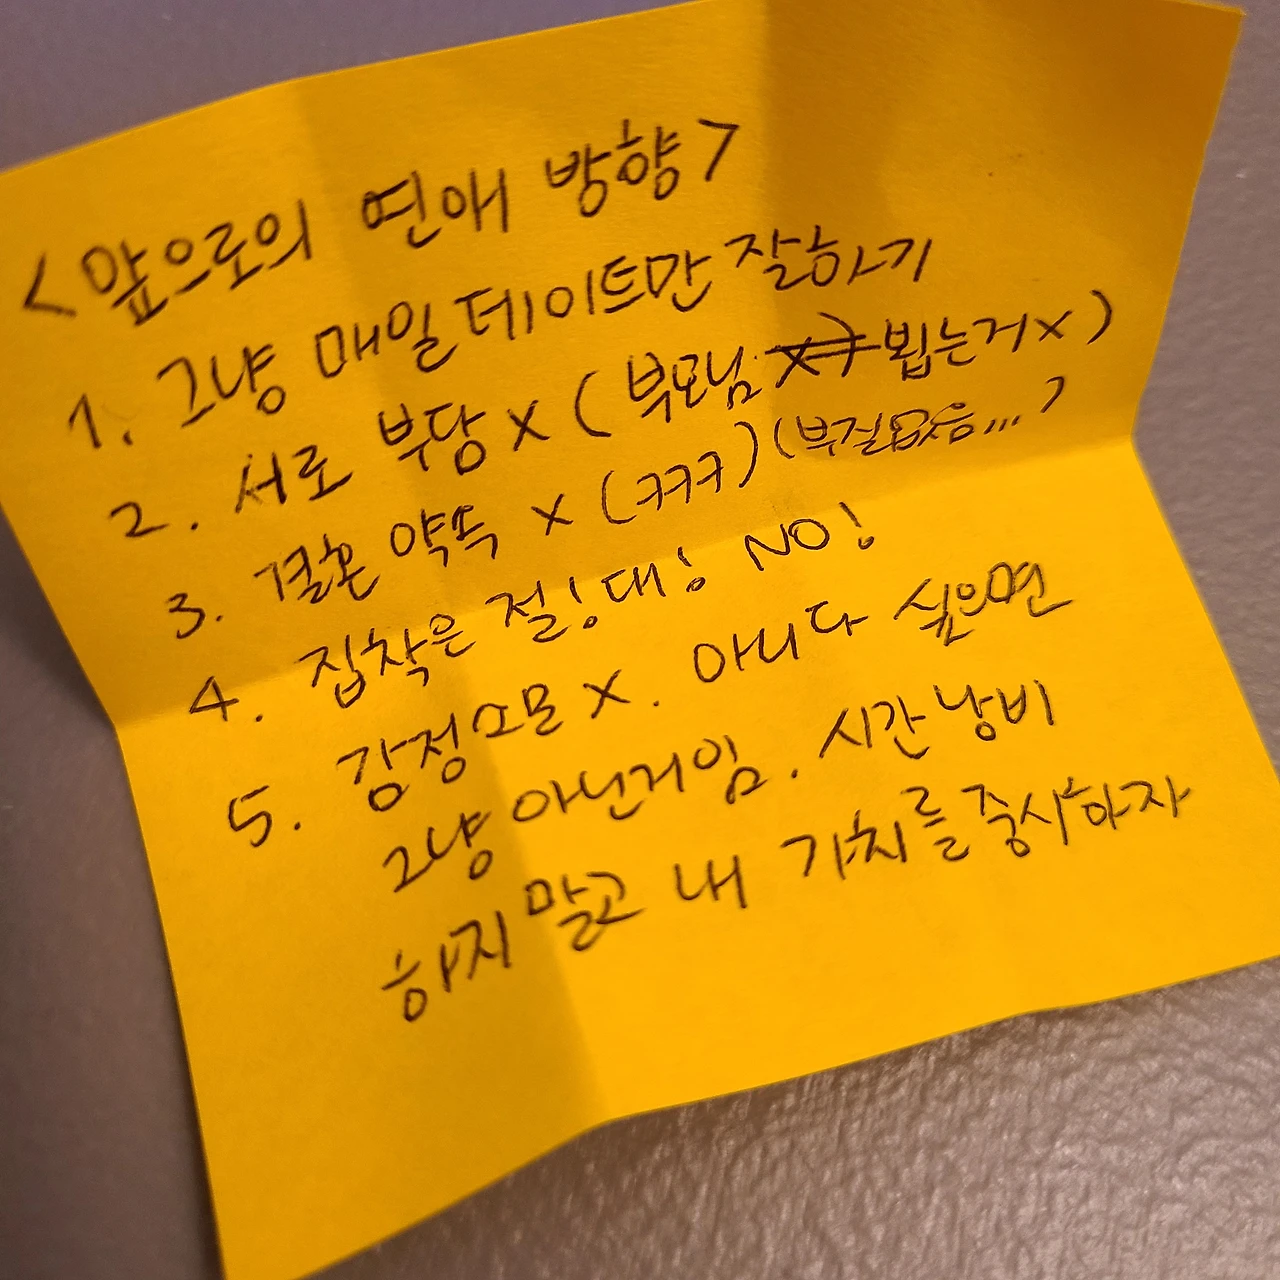 <앞으로의 연애 방향>
1. 그냥 매일 데이트만 잘하기
2. 서로 부담 x (부모님 x) 뵙는거x)
3. 결혼 약속 x (ㅋㅋㅋ) (부질없음...)
4. 집착은 절!대! NO!
5. 감정소모 x. 아니다 싶으면
그냥 아닌거임. 시간낭비
하지 말고 내 가치를 중시하자